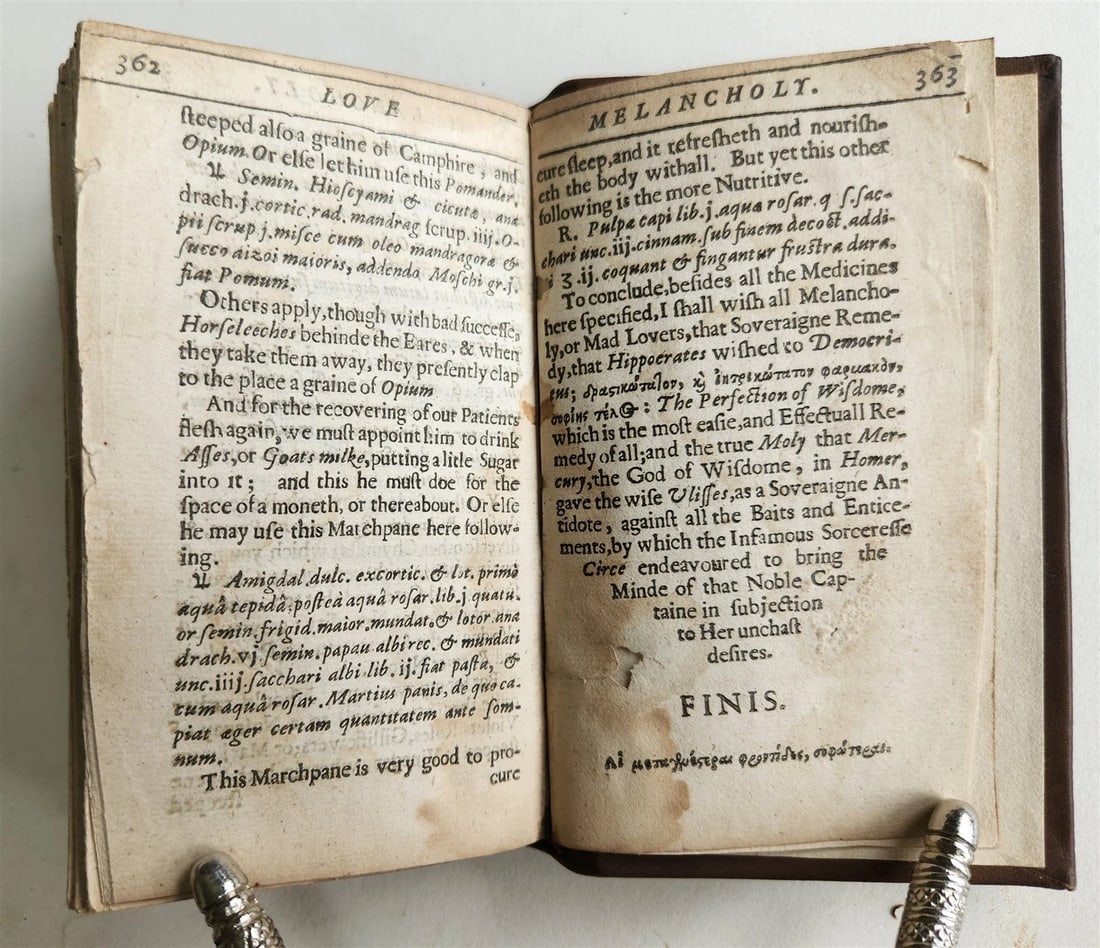 362
LOVE
ſteeped alſo a graine of Camphire, and
Opium. Or elſe let him uſe this Pomander.
♃ Semin. Hioſcyami & cicutæ, ana
drach.j.cortic.rad. mandrag ſcrup. iiij. O-
pii ſcrup j. miſce cum oleo mandragoræ &
ſucco aizoi maioris, addendo Moſchi gr.j.
fiat Pomum.
Others apply, though with bad ſucceſſe,
Horſeleeches behinde the Eares, & when
they take them away, they preſently clap
to the place a graine of Opium
And for the recovering of our Patients
fleſh again, we muſt appoint him to drink
Aſſes, or Goats milke, putting a litle Sugar
into it; and this he muſt doe for the
ſpace of a moneth, or thereabout. Or elſe
he may uſe this Marchpane here follow-
ing.
♃ Amigdal. dulc. excortic. & lot. primò
aquâ tepidâ, poſteà aquâ roſar. lib.j quatu-
or ſemin. frigid. maior. mundat. & lotor. ana
drach. vj ſemin. papau albi rec. & mundati
unc. iiij. ſacchari albi lib. ij. fiat paſta, &
cum aquâ roſar. Martius panis, de quo ca-
piat æger certam quantitatem ante ſom-
num.
This Marchpane is very good to pro-
cure
MELANCHOLY.
363
cure ſleep, and it refreſheth and nouriſh-
eth the body withall. But yet this other
following is the more Nutritive.
R. Pulpæ capi lib.j. aquæ roſar. q ſ. ſac-
chari unc. iij. cinnam. ſub finem decoct. addi-
i ʒ. ij. coquant & fingantur fruſtra dura.
To conclude, beſides all the Medicines
here ſpecified, I ſhall wiſh all Melancho-
ly, or Mad Lovers, that Soveraigne Reme-
dy, that Hippocrates wiſhed to Democri-
tus; δραστικώτατον, ϗ ἰητρικώτατον φαρμακόν,
σοφίης τέλος: The Perfection of Wiſdome,
which is the moſt eaſie, and Effectuall Re-
medy of all; and the true Moly that Mer-
cury, the God of Wiſdome, in Homer,
gave the wiſe Uliſſes, as a Soveraigne An-
tidote, againſt all the Baits and Entice-
ments, by which the Infamous Sorcereſſe
Circe endeavoured to bring the
Minde of that Noble Cap-
taine in ſubjection
to Her unchaſt
deſires.
FINIS.
Αἱ μεταγενέστεραι φροντίδες, σοφώτεραι.